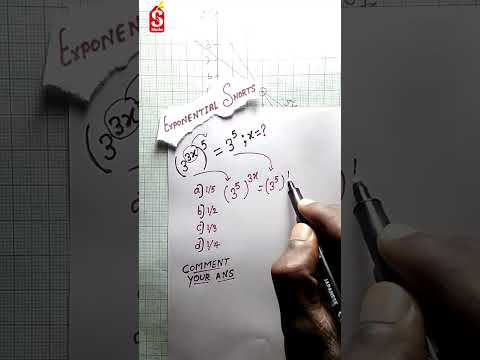 S
EXPONENTIAL SHORTS
(3^3x)^5 = 3^5 ; x=?
a) 1/5 (3^5)^3x = (3^5)^1
b) 1/2
c) 1/3
d) 1/4
COMMENT
YOUR ANS